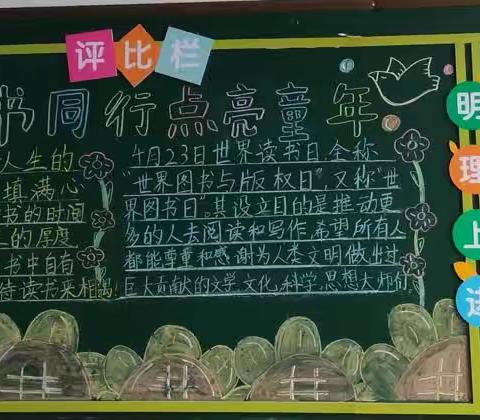 评比栏
书同行点亮童年
人生的
填满心
书的时间
生的厚度
书中自有
待读书来相遇!
4月23日世界读书日,全称
"世界图书与版权日",又称"世
界图书日"。其设立目的是推动更
多的人去阅读和写作,希望所有人
都能尊重和感谢为人类文明做出过
巨大贡献的文学、文化、科学、思想大师们
明
理
上
进